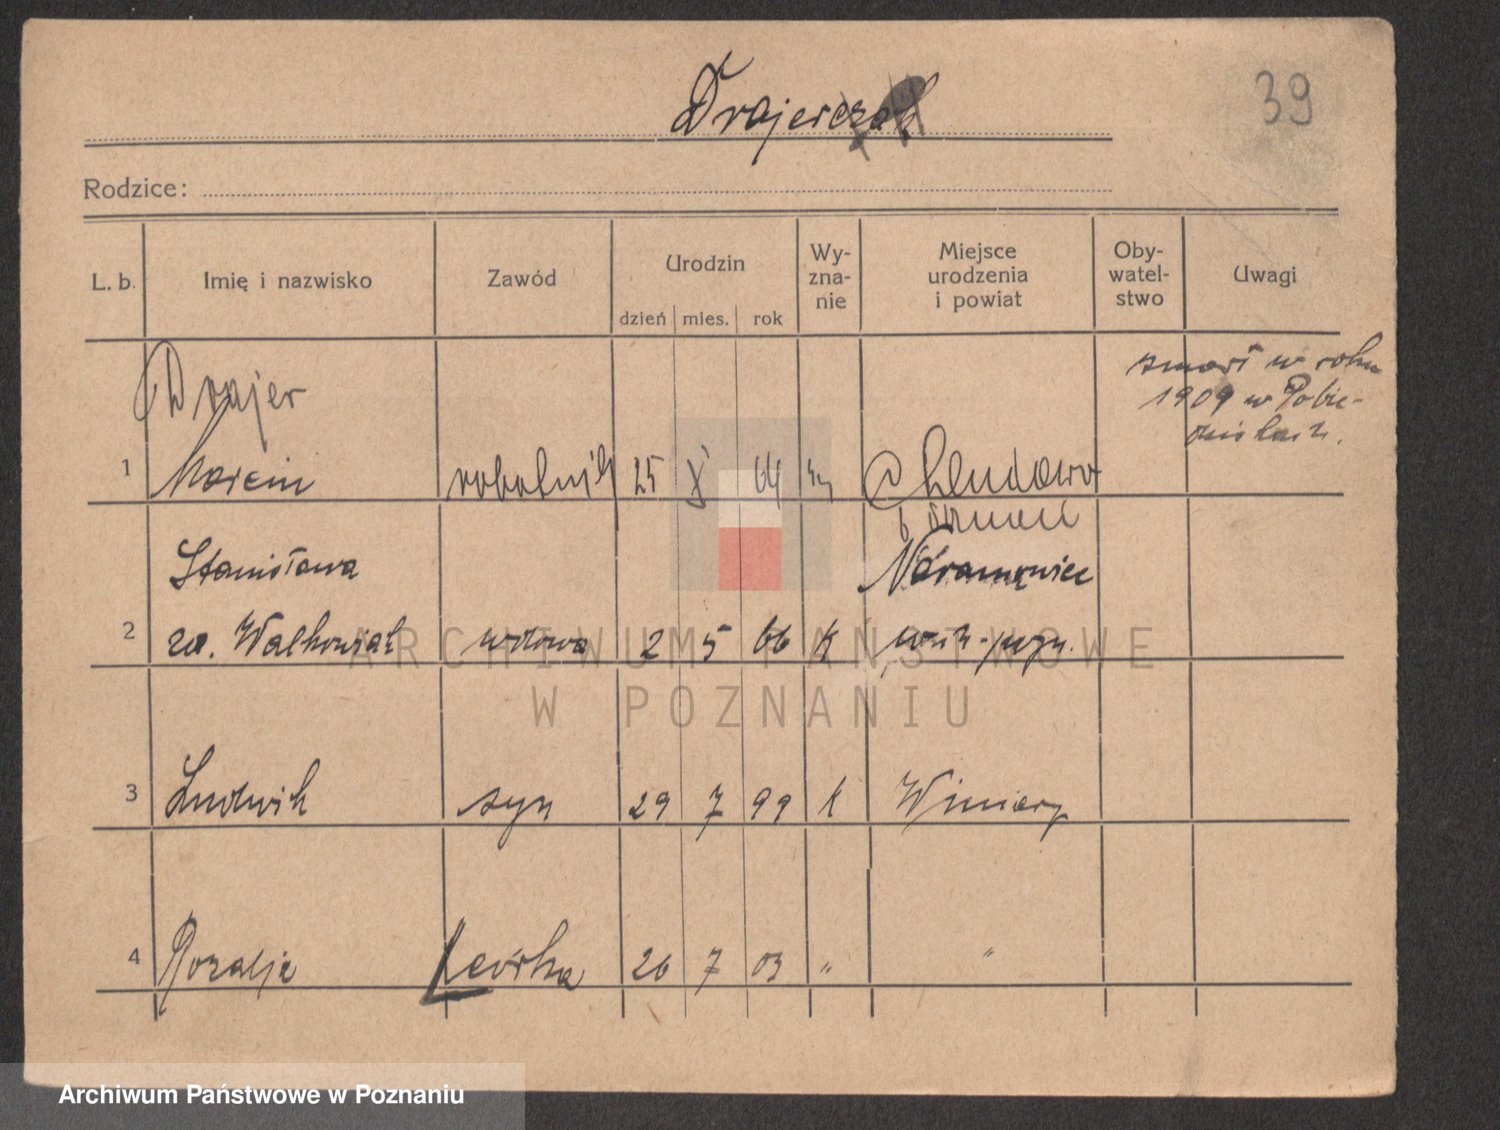 39
Drajerczak
Rodzice:
L. b. Imię i nazwisko Zawód Urodzin dzień mies. rok Wy-zna-nie Miejsce urodzenia i powiat Oby-watel-stwo Uwagi
zmarł w roku
1909 w Pobie-
dziskach.
Drajer
1 Marcin robotnik 25 X 64 Chludowo
Poznań
Stanisława Naramowice
2 zd. Walkowiak wdowa 2 5 66 k
3 Ludwik syn 29 7 99 k Winiary
4 Rozalja córka 26 7 03 " "
ARCHIWUM PAŃSTWOWE
W POZNANIU
Archiwum Państwowe w Poznaniu